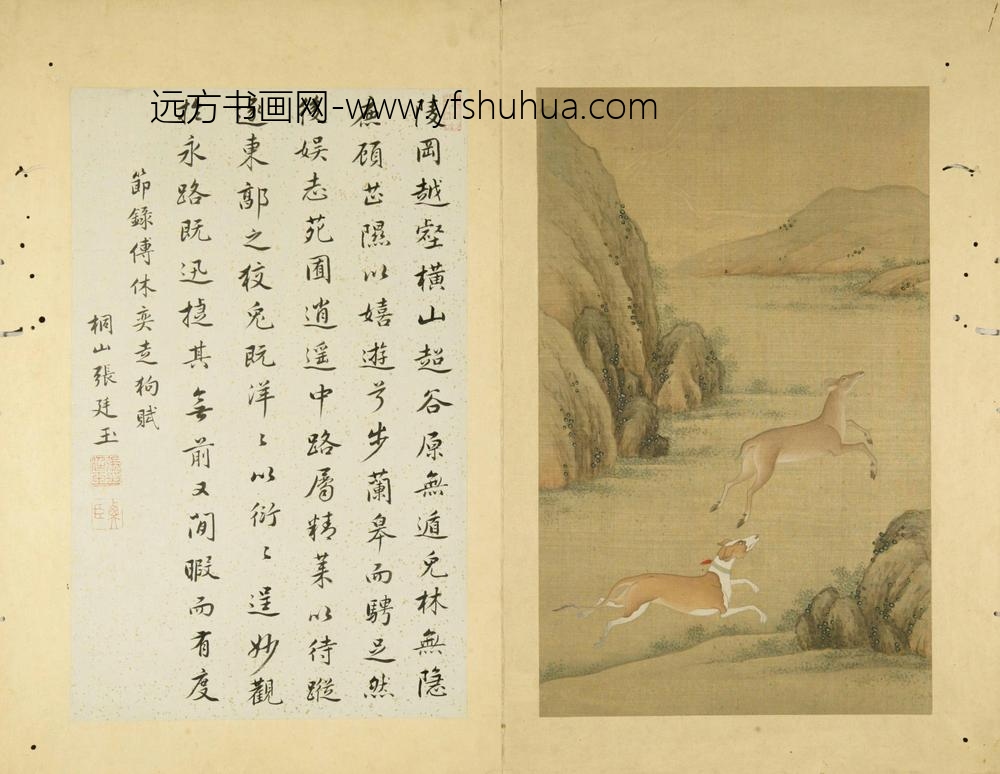 远方书画网-www.yfshuhua.com
陵岡越壑橫山超谷原無遁兔林無隱
鹿顧芷隰以嬉遊兮步蘭皋而騁足然
後娛志苑囿逍遥中路屬精萊以待蹤
逐東郭之狡兔既洋〻以衍〻逞妙觀
於永路既迅捷其無前又閒暇而有度
節錄傅休奕走狗賦
桐山張廷玉